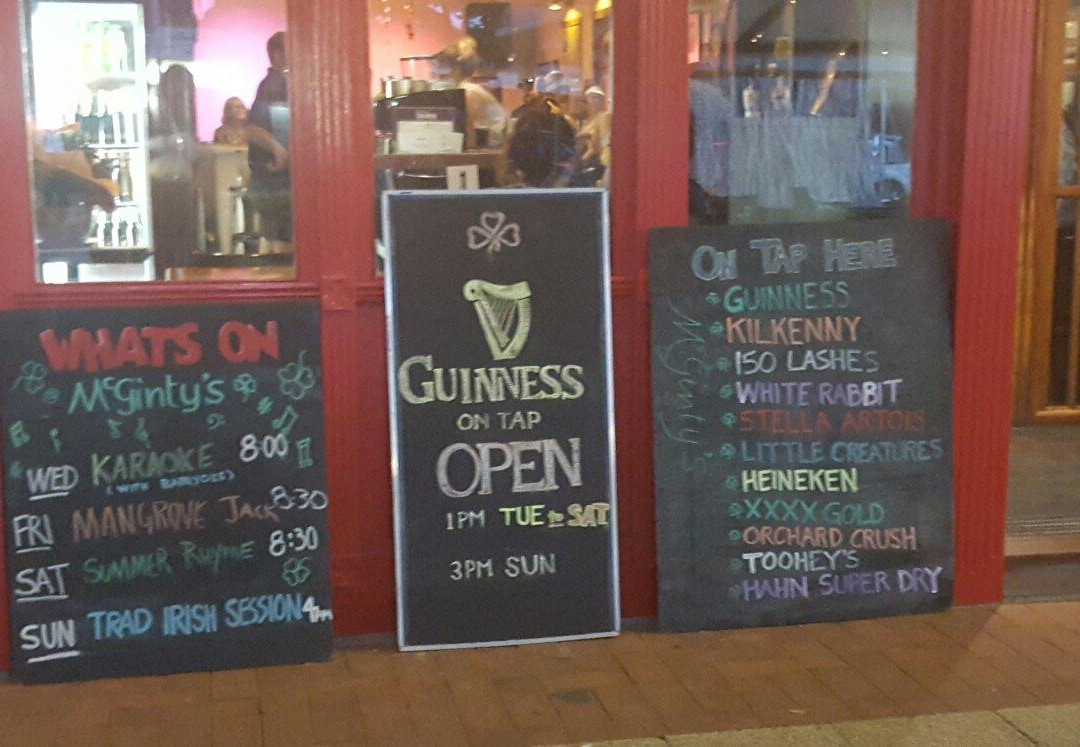 WHATS ON
McGinty's
WED KARAOKE 8:00
FRI MANGROVE Jack 8:30
SAT SUMMER Rhyme 8:30
SUN TRAD IRISH SESSION 4pm
GUINNESS
ON TAP
OPEN
1PM TUE to SAT
3PM SUN
ON TAP HERE
McGinty's
GUINNESS
KILKENNY
150 LASHES
WHITE RABBIT
STELLA ARTOIS
LITTLE CREATURES
HEINEKEN
XXXX GOLD
ORCHARD CRUSH
TOOHEY'S
HAHN SUPER DRY